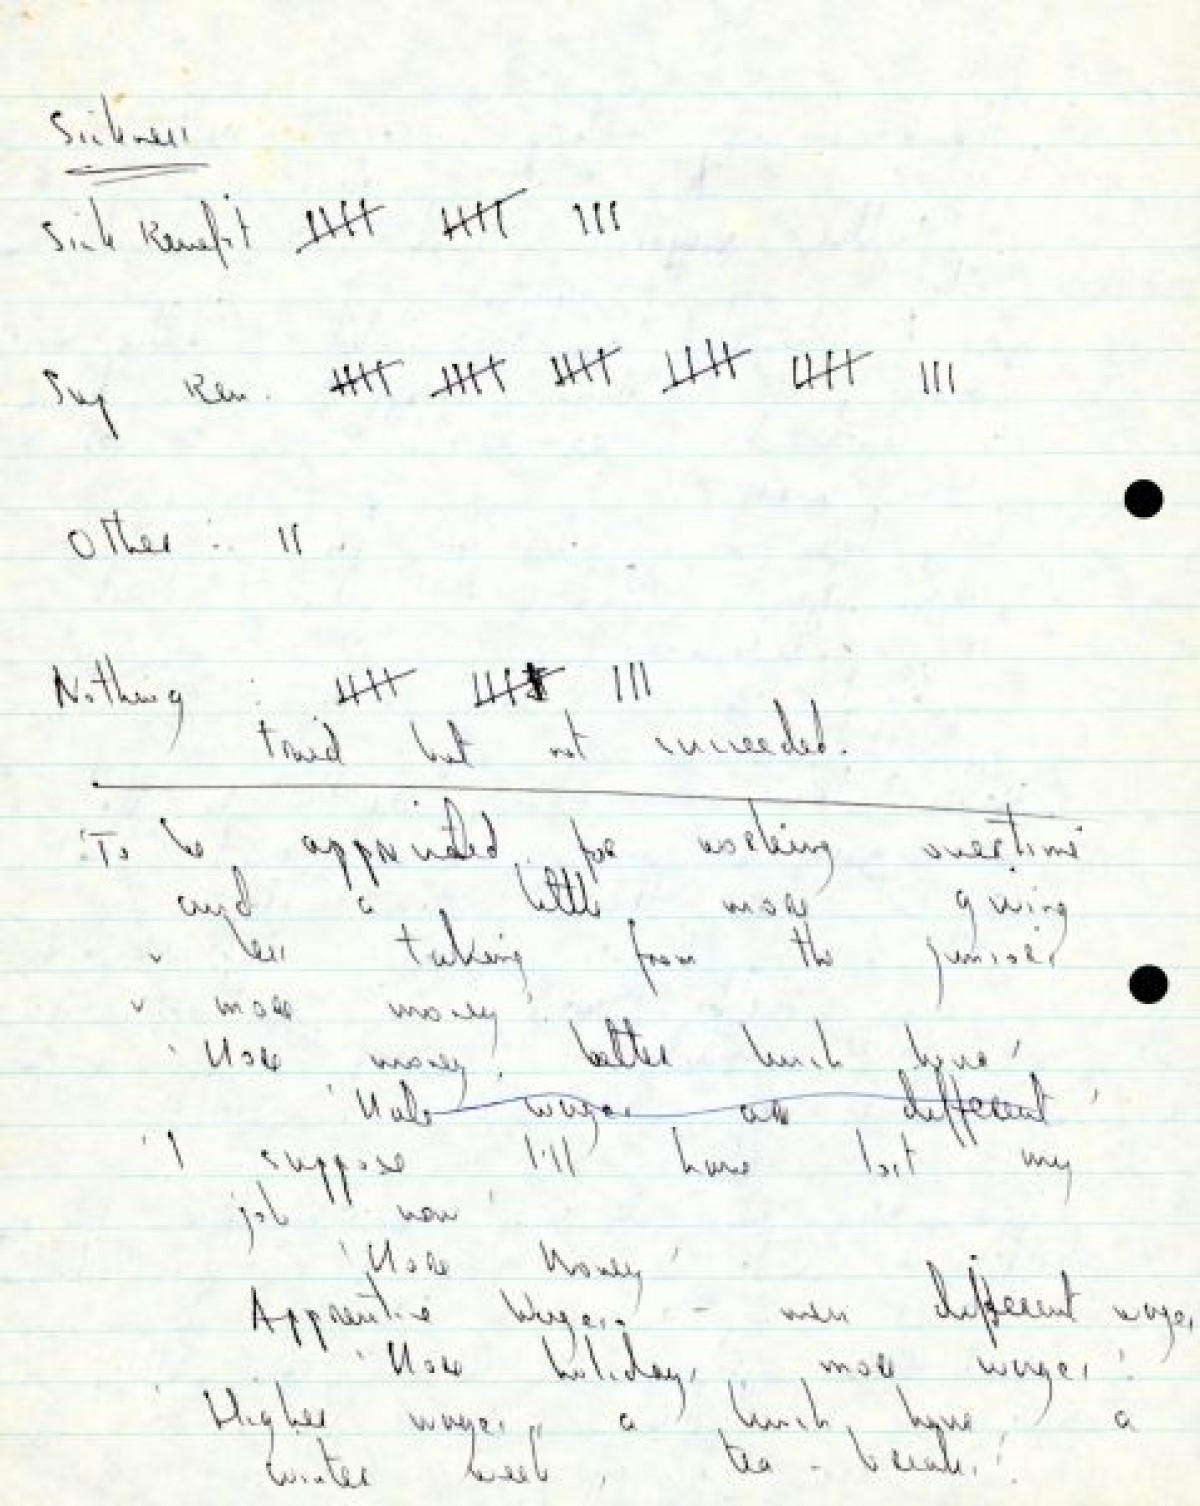 Sickness
Sick Benefit 卌 卌 |||
Sup Ben. 卌 卌 卌 卌 卌 |||
Other : ||
Nothing : 卌 卌 |||
tried but not succeeded.
'To be appreciated for working overtime
and a little more giving
less taking from the juniors
more money'
'More money! better lunch hour'
'Male wages are different'
'I suppose I'll have lost my
job now'
'More Money'
Apprentice Wages - men different wages
'More holidays more wages'
'Higher wages, a lunch hour, a
winter week, tea-breaks.'